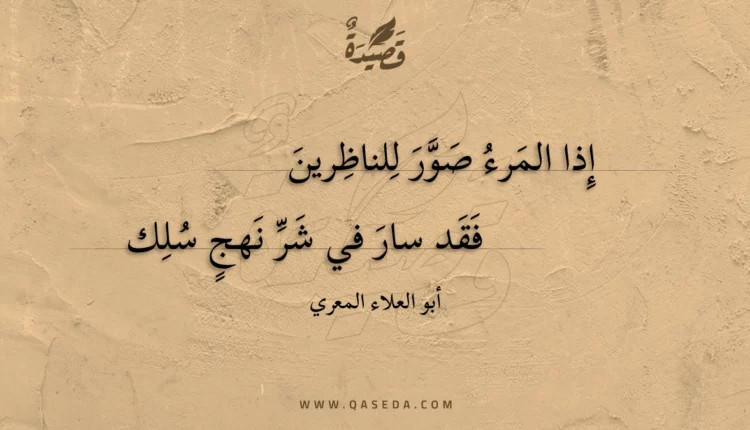 قَصِيدَةٌ
إِذا المَرءُ صَوَّرَ لِلناظِرينَ
فَقَد سارَ في شَرِّ نَهجٍ سُلِك
أبو العلاء المعري
WWW.QASEDA.COM